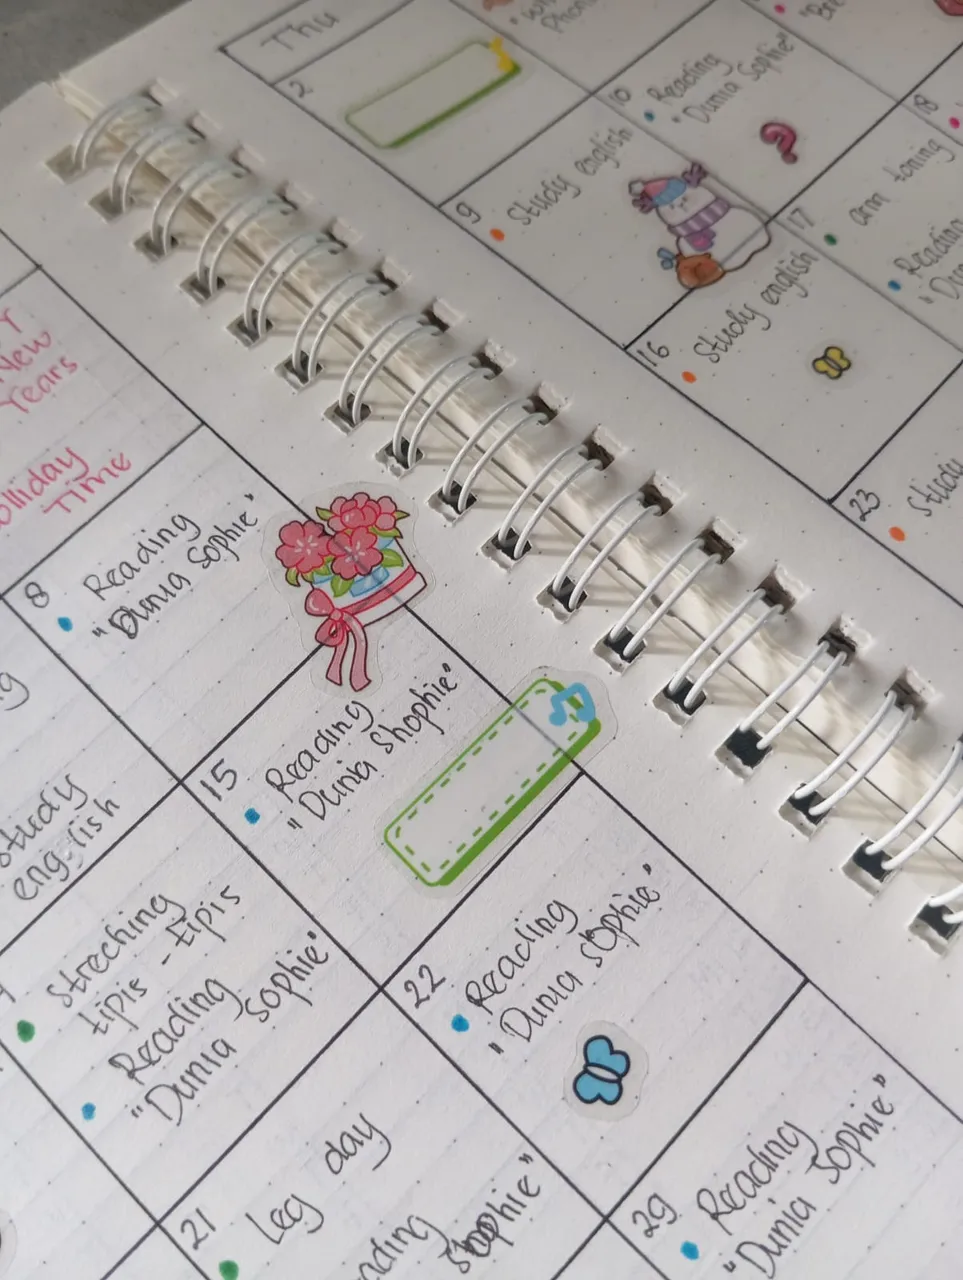 New
Years
Time
8
Reading
"Dunia Sophie"
15
Reading
"Dunia Shophie"
22
Reading
"Dunia Sophie"
29
Reading
"Dunia Sophie"
Study
english
Streching
tipis - tipis
Reading
"Dunia Sophie"
21
Leg day
Thu
2
9
Study english
16
Study english
23
Study
10
Reading
"Dunia Sophie"
17
arm toning
Reading
18